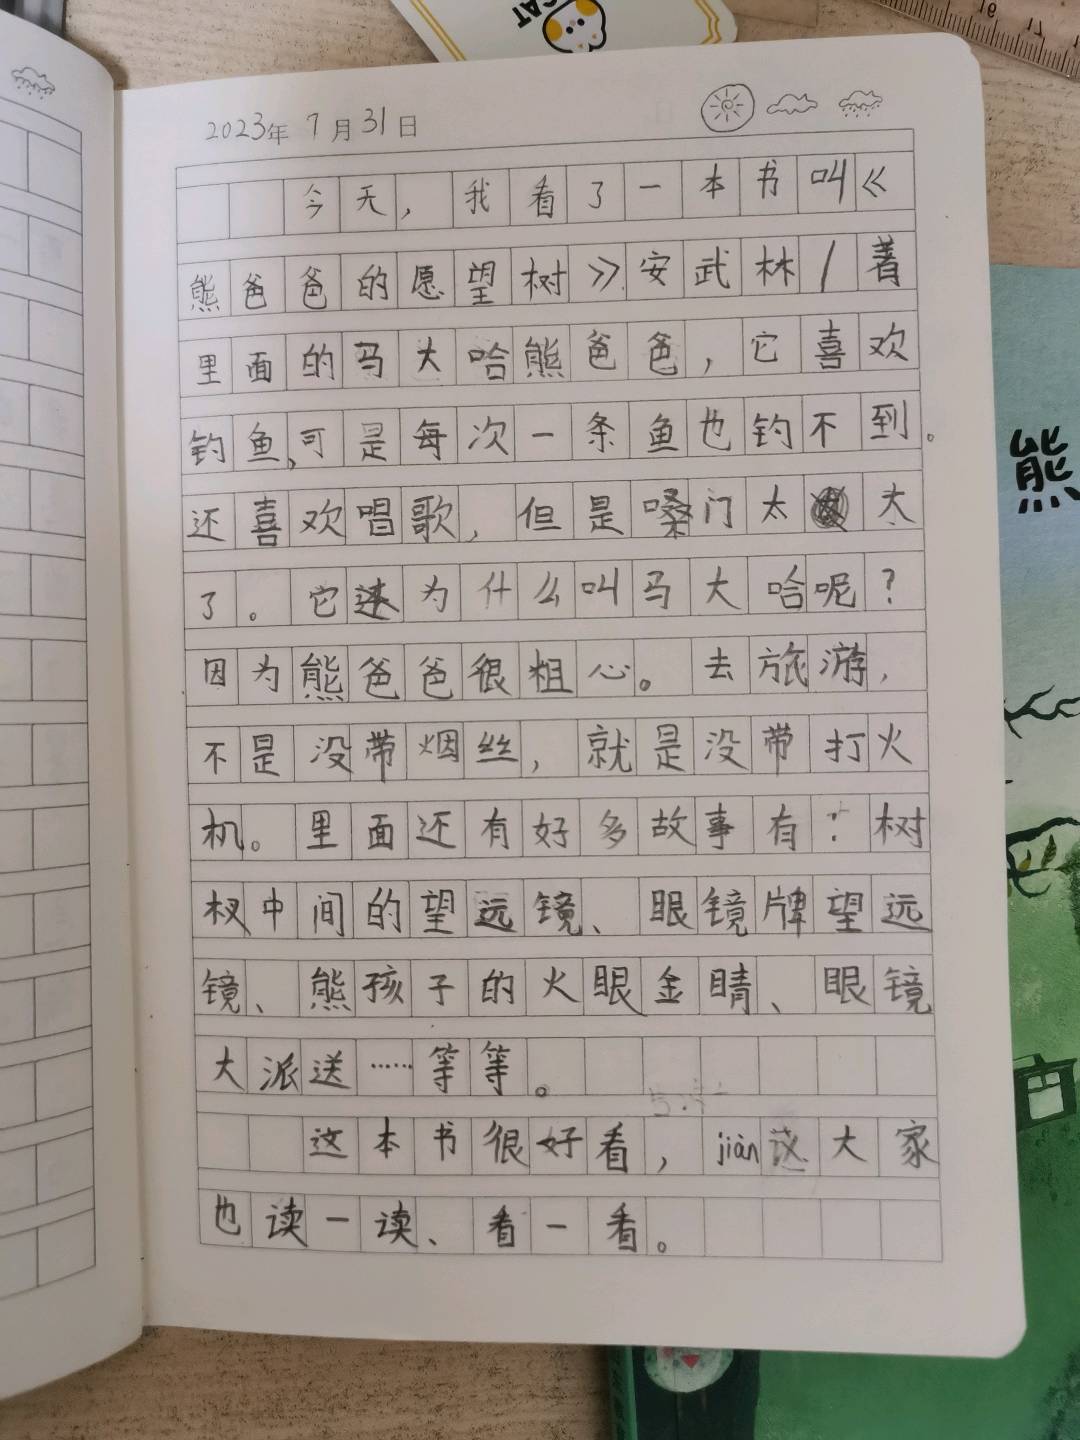 CAT
16 17
2023年 7月31日
今天，我看了一本书叫《
熊爸爸的愿望树》安武林/着
里面的马大哈熊爸爸，它喜欢
钓鱼,可是每次一条鱼也钓不到。
还喜欢唱歌，但是嗓门太大
了。它为什么叫马大哈呢？
因为熊爸爸很粗心。去旅游，
不是没带烟丝，就是没带打火
机。里面还有好多故事有：树
杈中间的望远镜、眼镜牌望远
镜、熊孩子的火眼金睛、眼镜
大派送……等等。
这本书很好看，jiàn议大家
也读一读、看一看。
熊